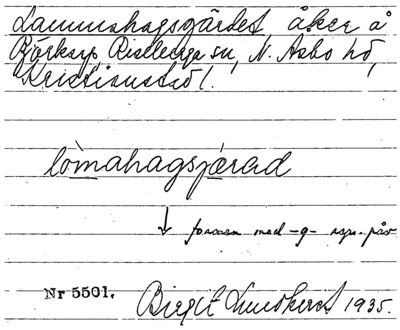 Lammahagsgärdet, åker å
Björkarp, Riseberga sn, N. Åsbo hd,
Kristianstad l.
lòmahagsjærad
↓ formen med -g- upp.
Nr 5501. Birgit Lundkvist 1935.